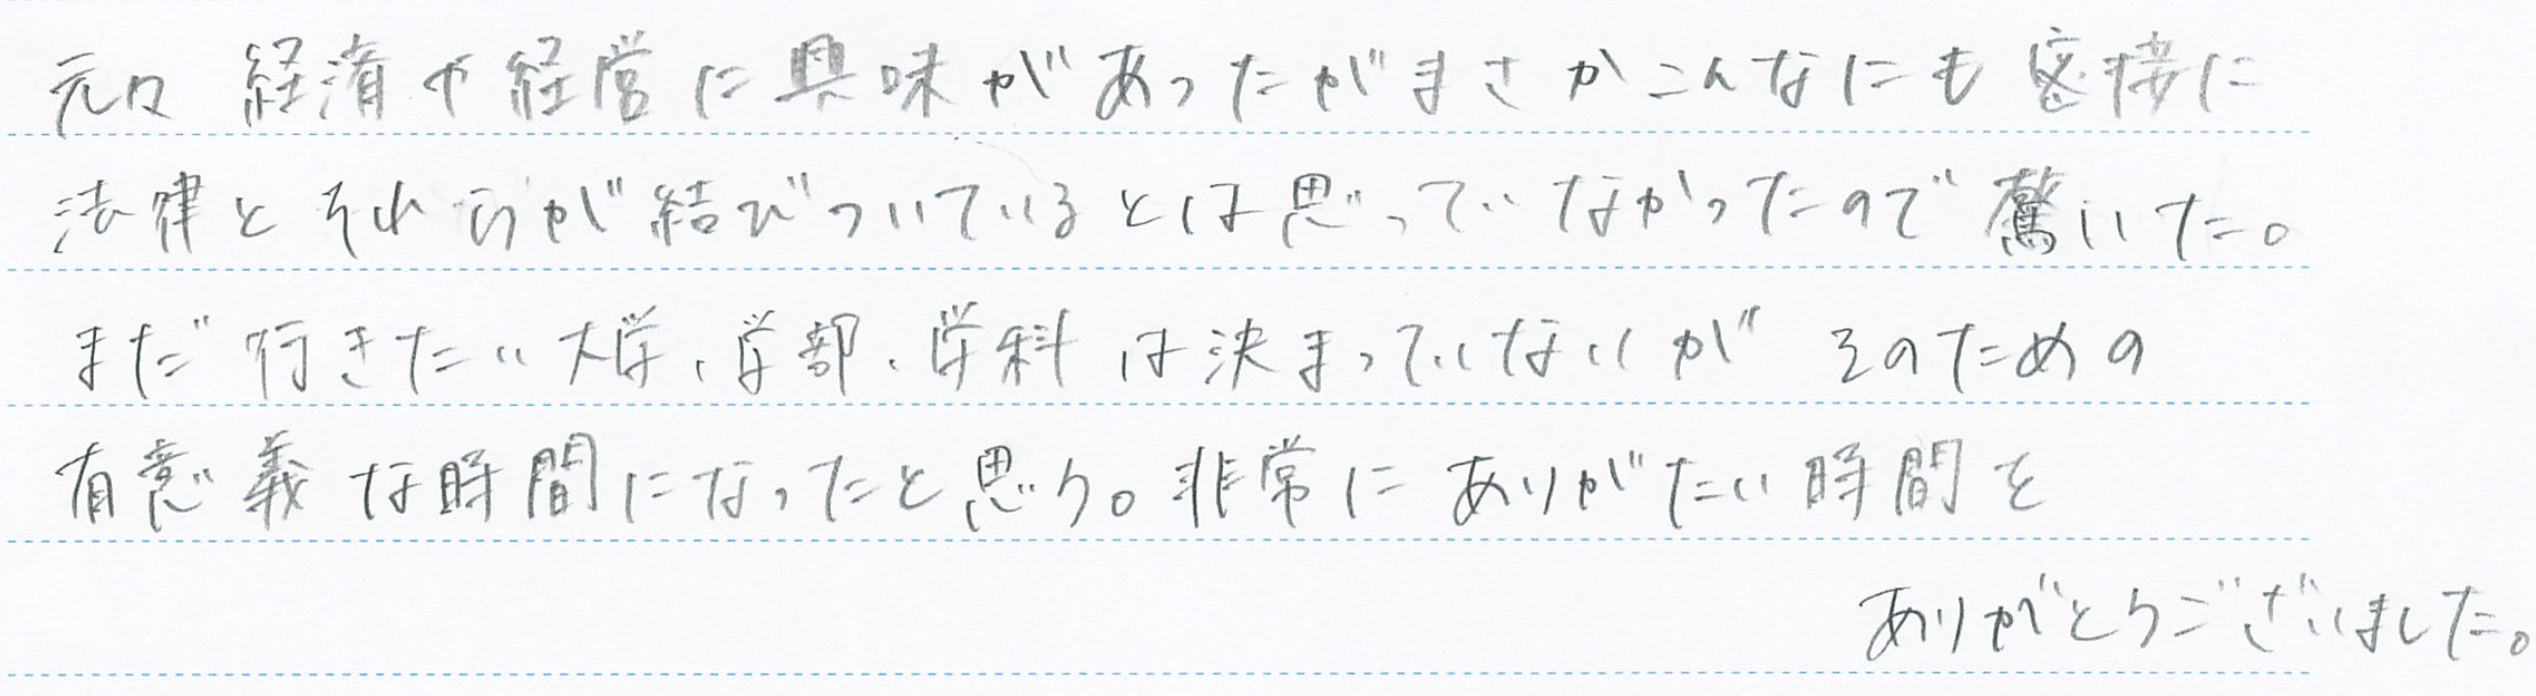 元々経済や経営に興味があったがまさかこんなにも密接に
法律とそれらが結びついているとは思っていなかったので驚いた。
まだ行きたい大学、学部、学科は決まっていないがそのための
有意義な時間になったと思う。非常にありがたい時間を
ありがとうございました。